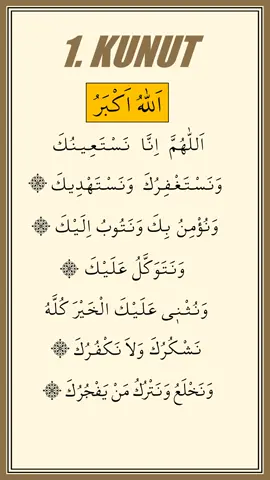 1. KUNUT
اَللهُ اَكْبَرُ
اَللّٰهُمَّ اِنَّا نَسْتَعِينُكَ
وَنَسْتَغْفِرُكَ وَنَسْتَهْدِيكَ ۞
وَنُؤْمِنُ بِكَ وَنَتُوبُ اِلَيْكَ ۞
وَنَتَوَكَّلُ عَلَيْكَ ۞
وَنُثْنِى عَلَيْكَ الْخَيْرَ كُلَّهُ
نَشْكُرُكَ وَلاَ نَكْفُرُكَ ۞
وَنَخْلَعُ وَنَتْرُكُ مَنْ يَفْجُرُكَ ۞